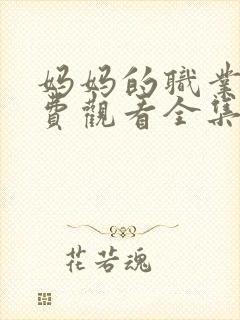 妈妈的職業
費觀看全集
花若魂